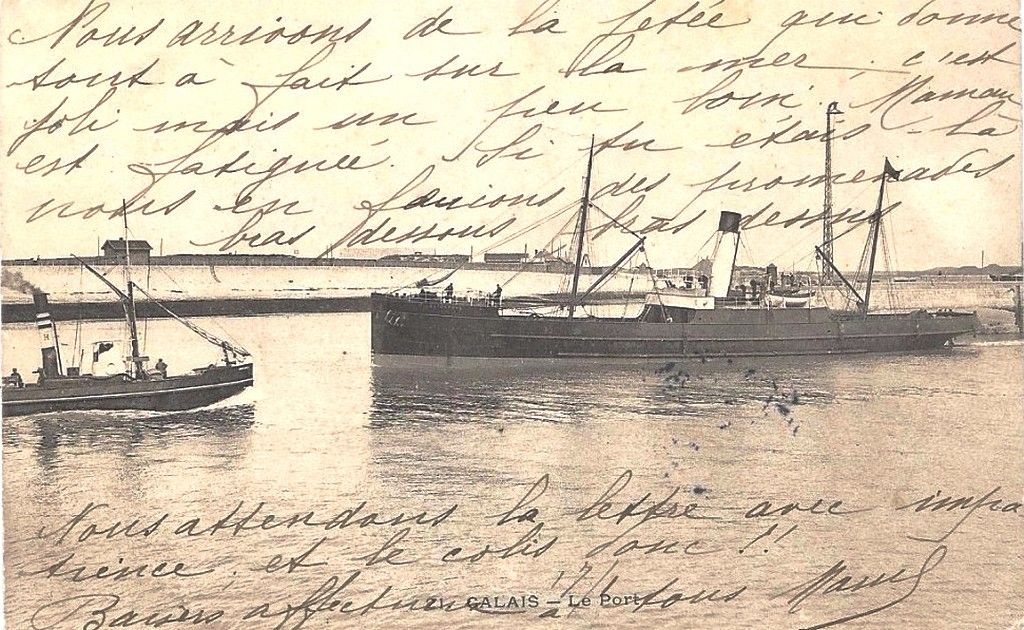 Nous arrivons de la jetée qui donne
tout à fait sur la mer. c'est
joli mais un peu loin. Maman
est fatiguée. Si tu étais là
nous en faurions des promenades
bras dessous bras dessus
H
Nous attendons la lettre avec impa
tience. et le colis donc !!
Baisers affectueux à tous
21. CALAIS – Le Port